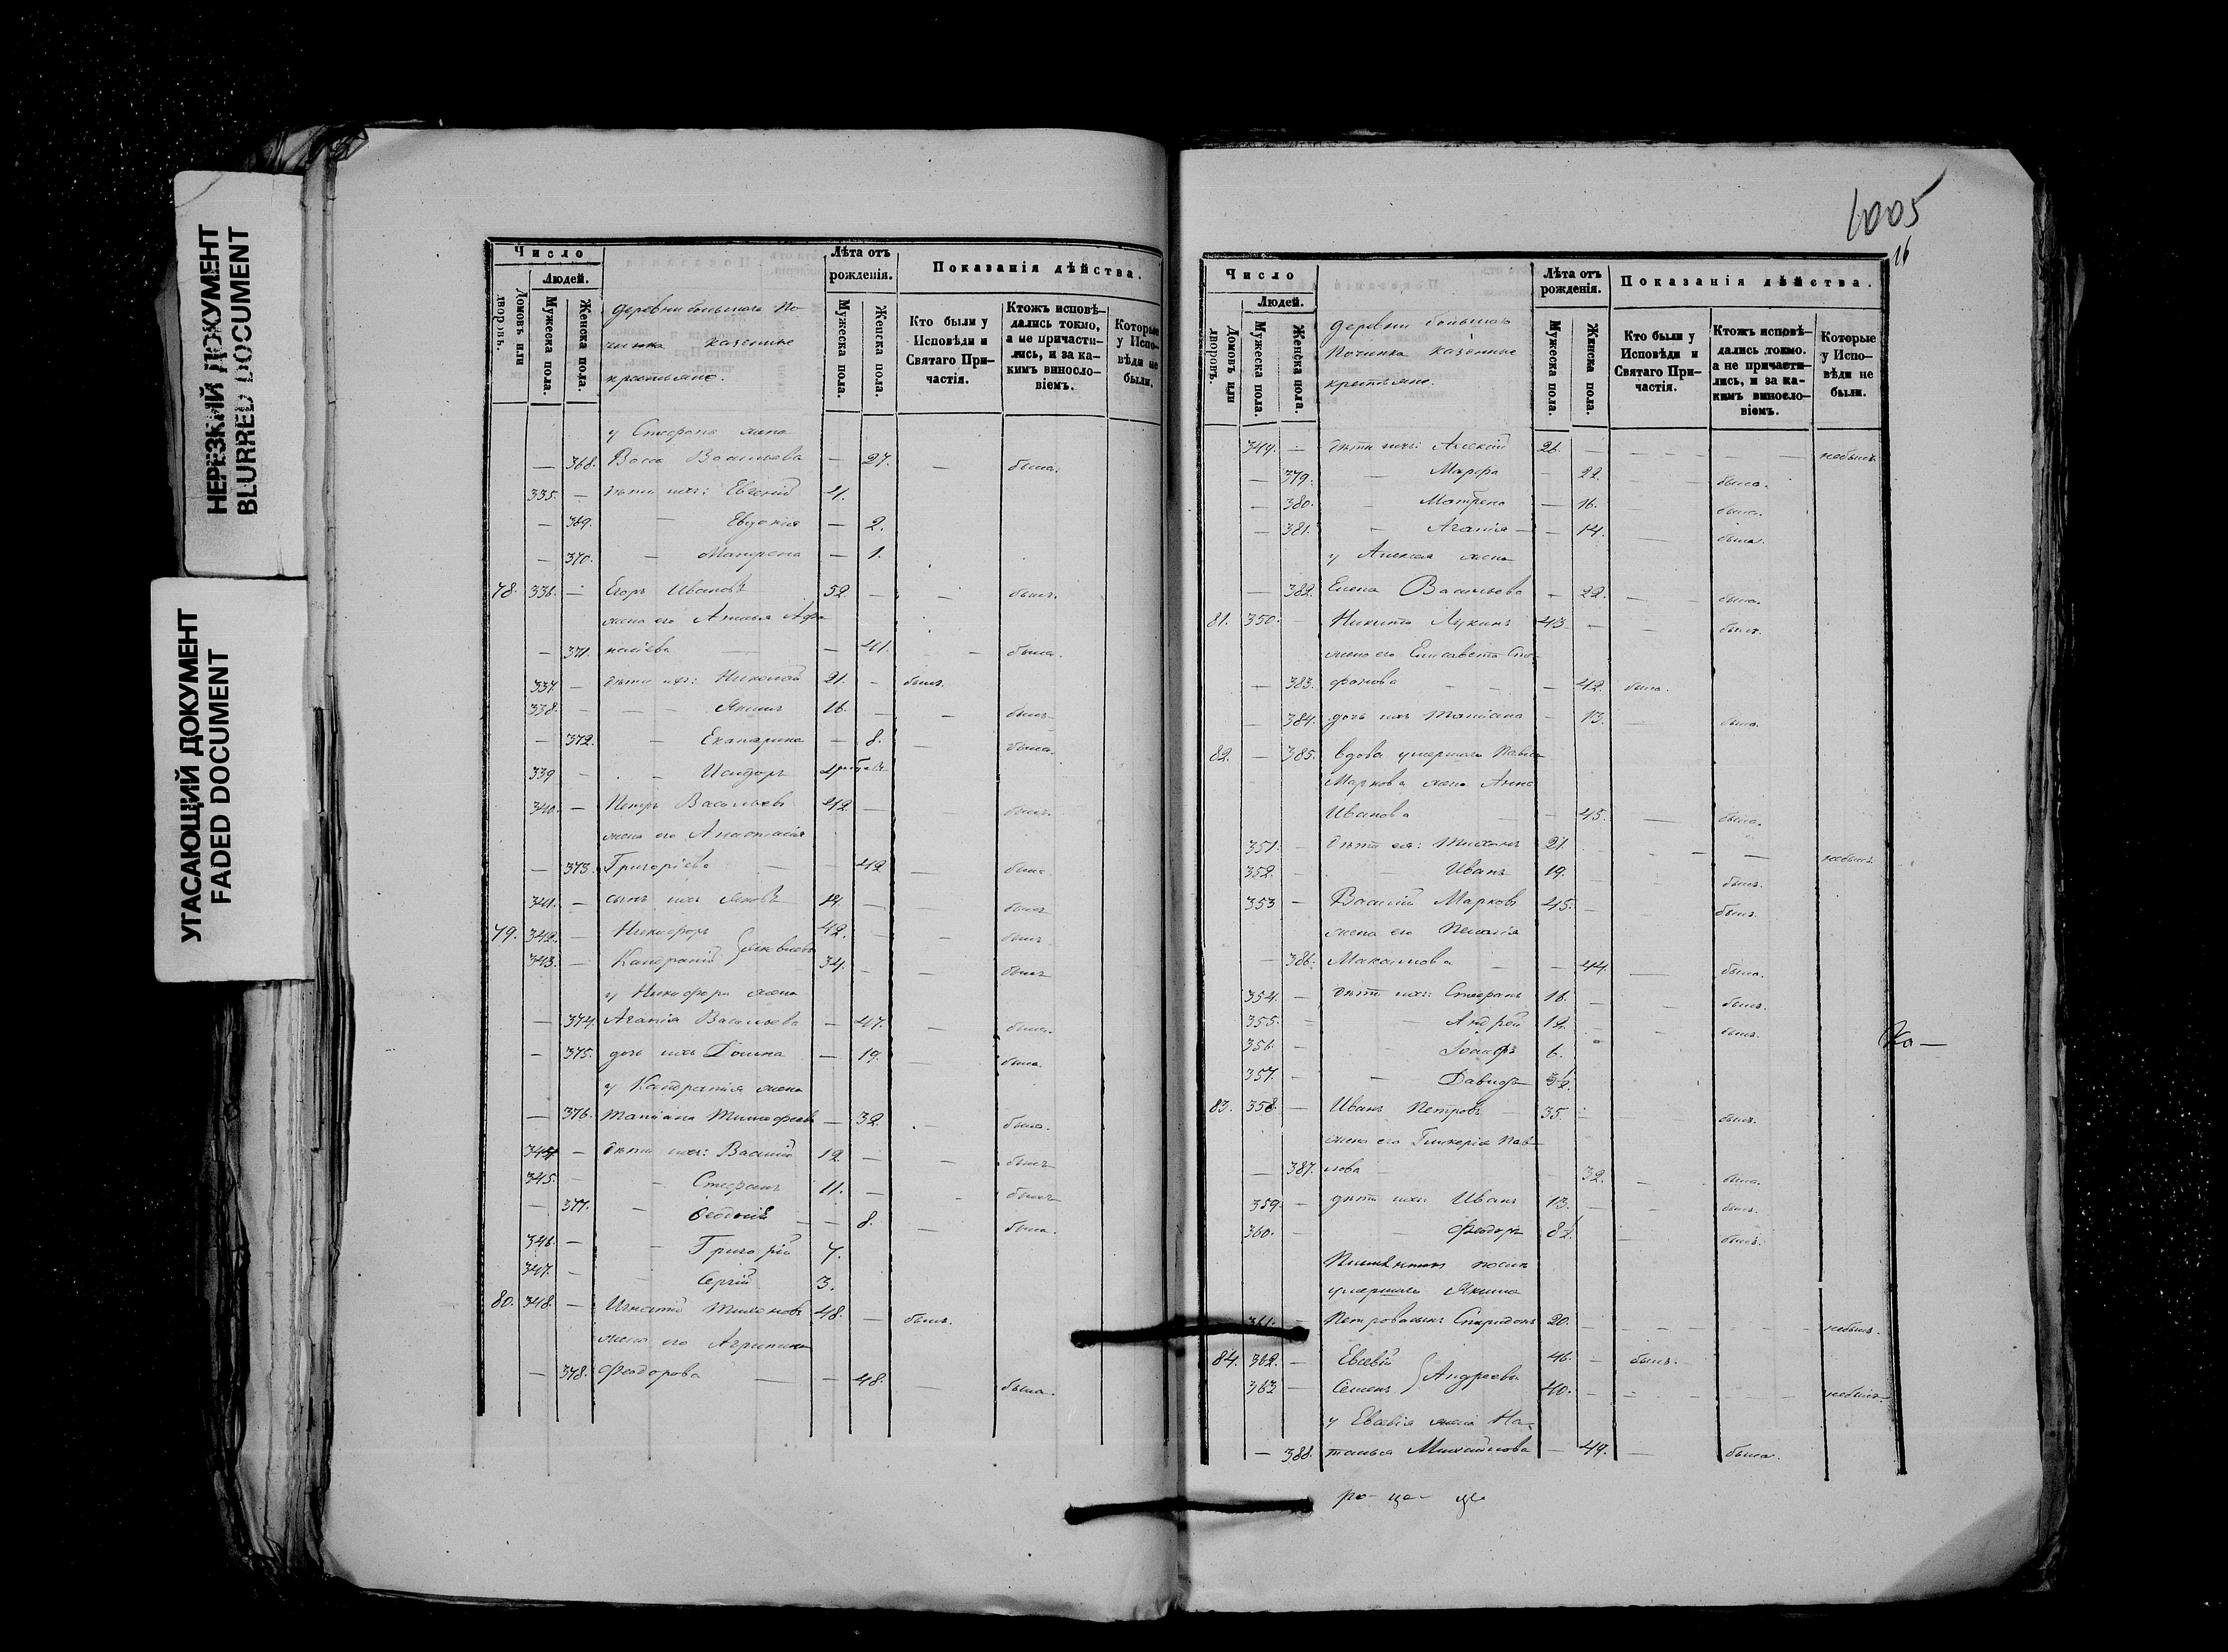 НЕРЕЗКИЙ ДОКУМЕНТ
BLURRED DOCUMENT
УГАСАЮЩИЙ ДОКУМЕНТ
FADED DOCUMENT
Число
Людей.
Домовъ или дворовъ.
Мужеска пола.
Женска пола.
деревни большаго По-
чинка казенные
крестьяне.
Лѣта отъ
рожденія.
Мужеска пола.
Женска пола.
Показанія дѣйства.
Кто были у
Исповѣди и
Святаго При-
частія.
Ктожъ исповѣ-
дались токмо,
а не причасти-
лись, и за ка-
кимъ виносло-
віемъ.
Которые
у Испо-
вѣди не
были.
у Стефана жена
— 368. Васильева — 27. — была.
335. — дѣти ихъ: Евгеній 4.
— 369. — Евдокія — 2.
— 370. — Матрена — 1.
78. 336. — Егоръ Ивановъ 52 — — былъ.
жена его Аѳа-
— 371. насіева — — 41. — была.
337. — дѣти ихъ: Николай 21. — былъ.
338. — — Якимъ 16. — — былъ
— 372. — Екатерина — 8. — была.
339 — — Исидоръ
340. — Петръ Васильевъ 42 — былъ.
жена его Анастасія
— 373. Григоріева — — 42 — была
341. — сынъ ихъ Яковъ 14. — — былъ
79. 342. — Никифоръ 42. — — былъ
343. — Кондратій 34. — — былъ
у Никифора жена
— 374. Агапія Васильева — 47. — была.
— 375. дочь ихъ Домна — 19. — была.
у Кондратія жена
— 376. Татіана Тимофеева — 32 — была.
344 — дѣти ихъ: Василій 12 — — былъ
345. — Стефанъ 11. — — былъ
— 377. — — 8. — была.
346. — — Григорій 7.
347. — — Сергій 3.
80. 348. — Игнатій Тихановъ 48. — былъ.
жена его Агрипина
— 378. Феодорова — — 48. — была.
1005
16
Число
Людей.
Домовъ или дворовъ.
Мужеска пола.
Женска пола.
деревни большаго
Починка казенные
крестьяне.
Лѣта отъ
рожденія.
Мужеска пола.
Женска пола.
Показанія дѣйства.
Кто были у
Исповѣди и
Святаго При-
частія.
Ктожъ исповѣ-
дались токмо.
а не причасти-
лись, и за ка-
кимъ виносло-
віемъ.
Которые
у Испо-
вѣди не
были.
349. — дѣти ихъ: Алексій 26. — — — — небылъ
— 379. Марфа — 22. — была.
— 380. — Матрена — 16. — была.
— 381. — Агапія — 14. — была.
у Алексея жена
— 382. Елена Васильева — 22. — была.
81. 350. — Никита Лукинъ 43 — — былъ.
жена его Елисавета Сте-
— 383. фанова — — 42. была.
— 384. дочь ихъ Татіана — 13. — была.
82. — 385. вдова умершаго Павла
Маркова жена Анна
Иванова — 45. — была.
351. — дѣти ея: Тиханъ 21. — — — небылъ
352. — — Иванъ 19. — — былъ.
353 — Василій Марковъ 45. — — былъ.
жена его Пелагія
— 386. Макси​мова — — 44. — была.
354. — дѣти ихъ: Стефанъ 16. — — былъ.
355. — — Андрей 12. — — былъ.
356. — — Іосифъ 6.
357. — — Давидъ
83. 358. — Иванъ Петровъ 35. — былъ.
жена его Гликерія Пав-
— 387. лова — 32. — была.
359. — дѣти ихъ: Иванъ 13. — — былъ.
360. — — Феодоръ — былъ.
умершаго Якима
361. — Спиридонъ 20. — — — — небылъ.
84. 362. — Евсевій 46. — былъ.
363 — Семенъ } Андреевы 40. — — — — небылъ.
у Евсевія жена На-
— 388. талья Михайлова — 49. — была.